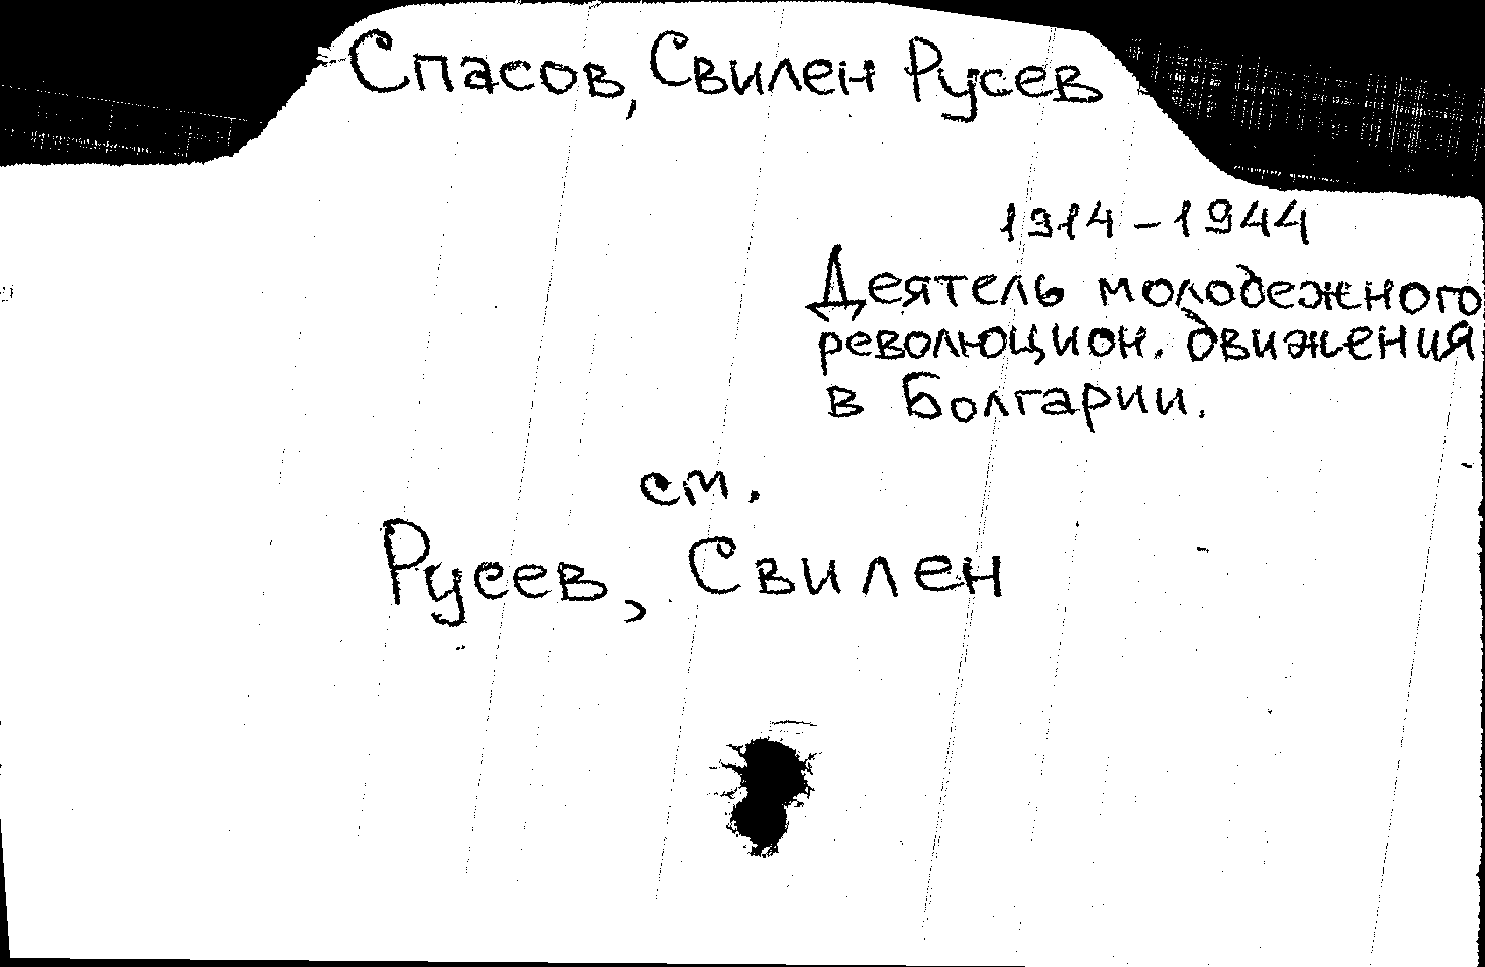 Спасов, Свилен Русев
1914-1944
Деятель молодежного
революцион. движения
в Болгарии.
см.
Русев, Свилен